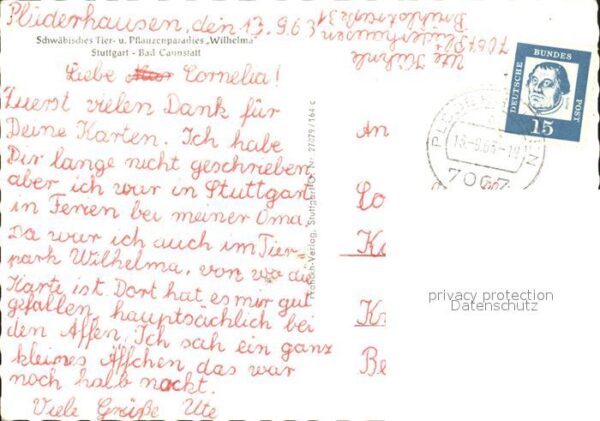 Plüderhausen, den 13.9.63
Schwäbisches Tier- u. Pflanzenparadies „Wilhelma"
Stuttgart - Bad Cannstatt
Liebe Cornelia!
Zuerst vielen Dank für
Deine Karten. Ich habe
Dir lange nicht geschrieben
aber ich war in Stuttgart
in Ferien bei meiner Oma.
Da war ich auch im Tier-
park Wilhelma, von wo die
Karte ist. Dort hat es mir gut
gefallen, hauptsächlich bei
den Affen. Ich sah ein ganz
kleines Äffchen, das war
noch halb nackt.
Viele Grüße Ute
Ute
7067 Plüderhausen
Stuttgart Nr. 27079/164 c
DEUTSCHE BUNDES POST
15
13.-9.63
7067
An
Co
K
K
Be
privacy protection
Datenschutz